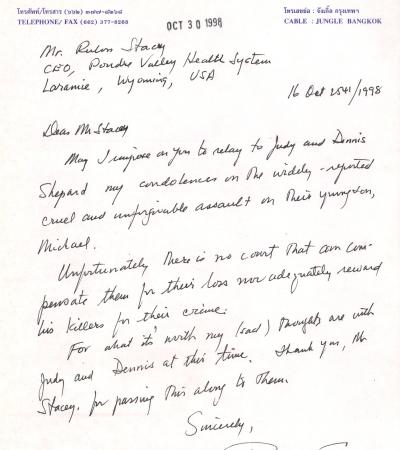 โทรศัพท์/โทรสาร (๖๖๒) ๓๗๗-๘๒๖๘
TELEPHONE/ FAX (662) 377-8268
โทรเลขย่อ : จังเกิ้ล กรุงเทพฯ
CABLE : JUNGLE BANGKOK
OCT 30 1998
Mr. Rulon Stacey
CEO, Poudre Valley Health System
Laramie, Wyoming, USA
16 Oct 2541/1998
Dear Mr Stacey
May I impose on you to relay to Judy and Dennis
Shepard my condolences on the widely-reported
cruel and unforgivable assault on their young son,
Michael.
Unfortunately there is no court that can com-
pensate them for their loss nor adequately reward
his killers for their crime.
For what it's worth my (sad) thoughts are with
Judy and Dennis at this time. Thank you, Mr
Stacey, for passing this along to them.
Sincerely,